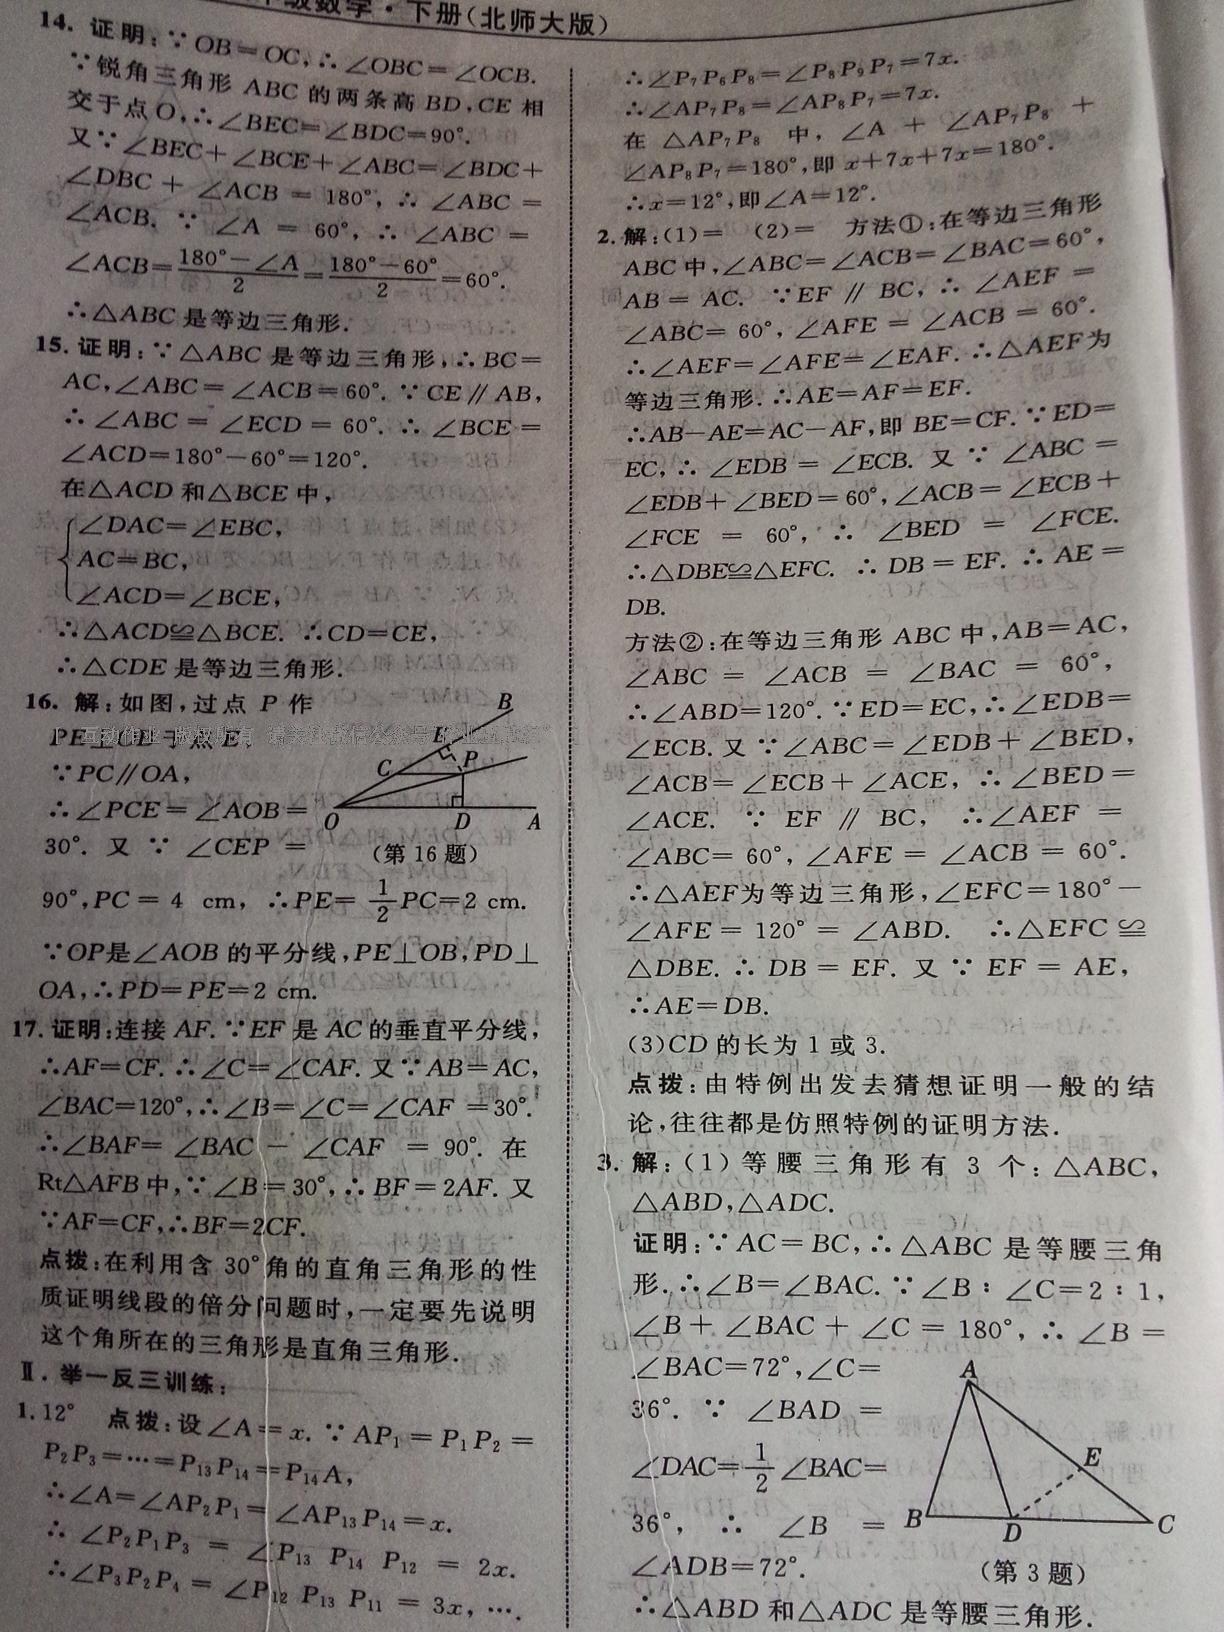 级数学·下册(北师大版)
14. 证明:∵OB=OC,∴∠OBC=∠OCB.
∵锐角三角形 ABC 的两条高 BD,CE 相
交于点O,∴∠BEC=∠BDC=90°.
又∵∠BEC+∠BCE+∠ABC=∠BDC+
∠DBC + ∠ACB = 180°, ∴ ∠ABC =
∠ACB. ∵ ∠A = 60°, ∴ ∠ABC =
∠ACB=(180°-∠A)/2=(180°-60°)/2=60°.
∴△ABC 是等边三角形.
15. 证明:∵△ABC 是等边三角形,∴BC=
AC,∠ABC=∠ACB=60°. ∵CE∥AB,
∴∠ABC=∠ECD=60°. ∴∠BCE=
∠ACD=180°-60°=120°.
在△ACD 和△BCE 中,
∠DAC=∠EBC,
AC=BC,
∠ACD=∠BCE,
∴△ACD≌△BCE. ∴CD=CE,
∴△CDE 是等边三角形.
16. 解:如图,过点 P 作
PE⊥OB于点 E,
∵PC∥OA,
∴∠PCE=∠AOB=
30°. 又 ∵ ∠CEP =
B
E
C
P
O
D
A
(第 16 题)
90°,PC = 4 cm, ∴PE=1/2PC=2 cm.
∵OP是∠AOB 的平分线,PE⊥OB,PD⊥
OA,∴PD=PE=2 cm.
17. 证明:连接 AF. ∵EF 是 AC的垂直平分线,
∴AF=CF. ∴∠C=∠CAF. 又∵AB=AC,
∠BAC=120°,∴∠B=∠C=∠CAF =30°.
∴∠BAF= ∠BAC - ∠CAF = 90°. 在
Rt△AFB 中,∵∠B=30°,∴BF=2AF. 又
∵AF=CF,∴BF=2CF.
点拨:在利用含 30°角的直角三角形的性
质证明线段的倍分问题时,一定要先说明
这个角所在的三角形是直角三角形.
Ⅱ. 举一反三训练:
1. 12° 点拨:设∠A=x. ∵AP₁=P₁P₂=
P₂P₃=…=P₁₃P₁₄=P₁₄A,
∴∠A=∠AP₂P₁=∠AP₁₃P₁₄=x.
∴ ∠P₂P₁P₃ = ∠P₁₃ P₁₄ P₁₂ = 2x.
∴∠P₃P₂P₄ = ∠P₁₂ P₁₃ P₁₁ = 3x, ….
∴∠P₇P₆P₈=∠P₈P₉P₇=7x.
∴∠AP₇P₈=∠AP₈P₇=7x.
在 △AP₇P₈ 中, ∠A + ∠AP₇P₈ +
∠AP₈P₇=180°,即 x+7x+7x=180°.
∴x=12°,即∠A=12°.
2. 解:(1)= (2)= 方法①:在等边三角形
ABC 中,∠ABC=∠ACB=∠BAC=60°,
AB = AC. ∵EF ∥ BC, ∴ ∠AEF =
∠ABC= 60°, ∠AFE = ∠ACB = 60°.
∴∠AEF=∠AFE=∠EAF. ∴△AEF为
等边三角形. ∴AE=AF=EF.
∴AB-AE=AC-AF,即 BE=CF. ∵ED=
EC, ∴ ∠EDB = ∠ECB. 又 ∵ ∠ABC =
∠EDB+∠BED=60°,∠ACB=∠ECB+
∠FCE = 60°, ∴ ∠BED = ∠FCE.
∴△DBE≌△EFC. ∴ DB = EF. ∴ AE =
DB.
方法②:在等边三角形 ABC 中,AB=AC,
∠ABC = ∠ACB = ∠BAC = 60°,
∴∠ABD=120°. ∵ED=EC,∴∠EDB=
∠ECB. 又 ∵ ∠ABC=∠EDB+∠BED,
∠ACB=∠ECB+∠ACE, ∴ ∠BED=
∠ACE. ∵ EF ∥ BC, ∴∠AEF =
∠ABC= 60°, ∠AFE = ∠ACB = 60°.
∴△AEF为等边三角形,∠EFC=180°-
∠AFE = 120° = ∠ABD. ∴△EFC ≌
△DBE. ∴ DB = EF. 又 ∵ EF = AE,
∴AE=DB.
(3)CD 的长为 1 或 3.
点拨:由特例出发去猜想证明一般的结
论,往往都是仿照特例的证明方法.
3. 解:(1)等腰三角形有 3 个:△ABC,
△ABD,△ADC.
证明:∵AC=BC,∴△ABC 是等腰三角
形. ∴∠B=∠BAC. ∵∠B∶∠C=2∶1,
∠B+∠BAC+∠C=180°,∴∠B=
∠BAC=72°,∠C=
36°. ∵ ∠BAD =
∠DAC=1/2∠BAC=
36°, ∴ ∠B =
∠ADB=72°.
A
E
B
D
C
(第 3 题)
∴△ABD 和△ADC 是等腰三角形.